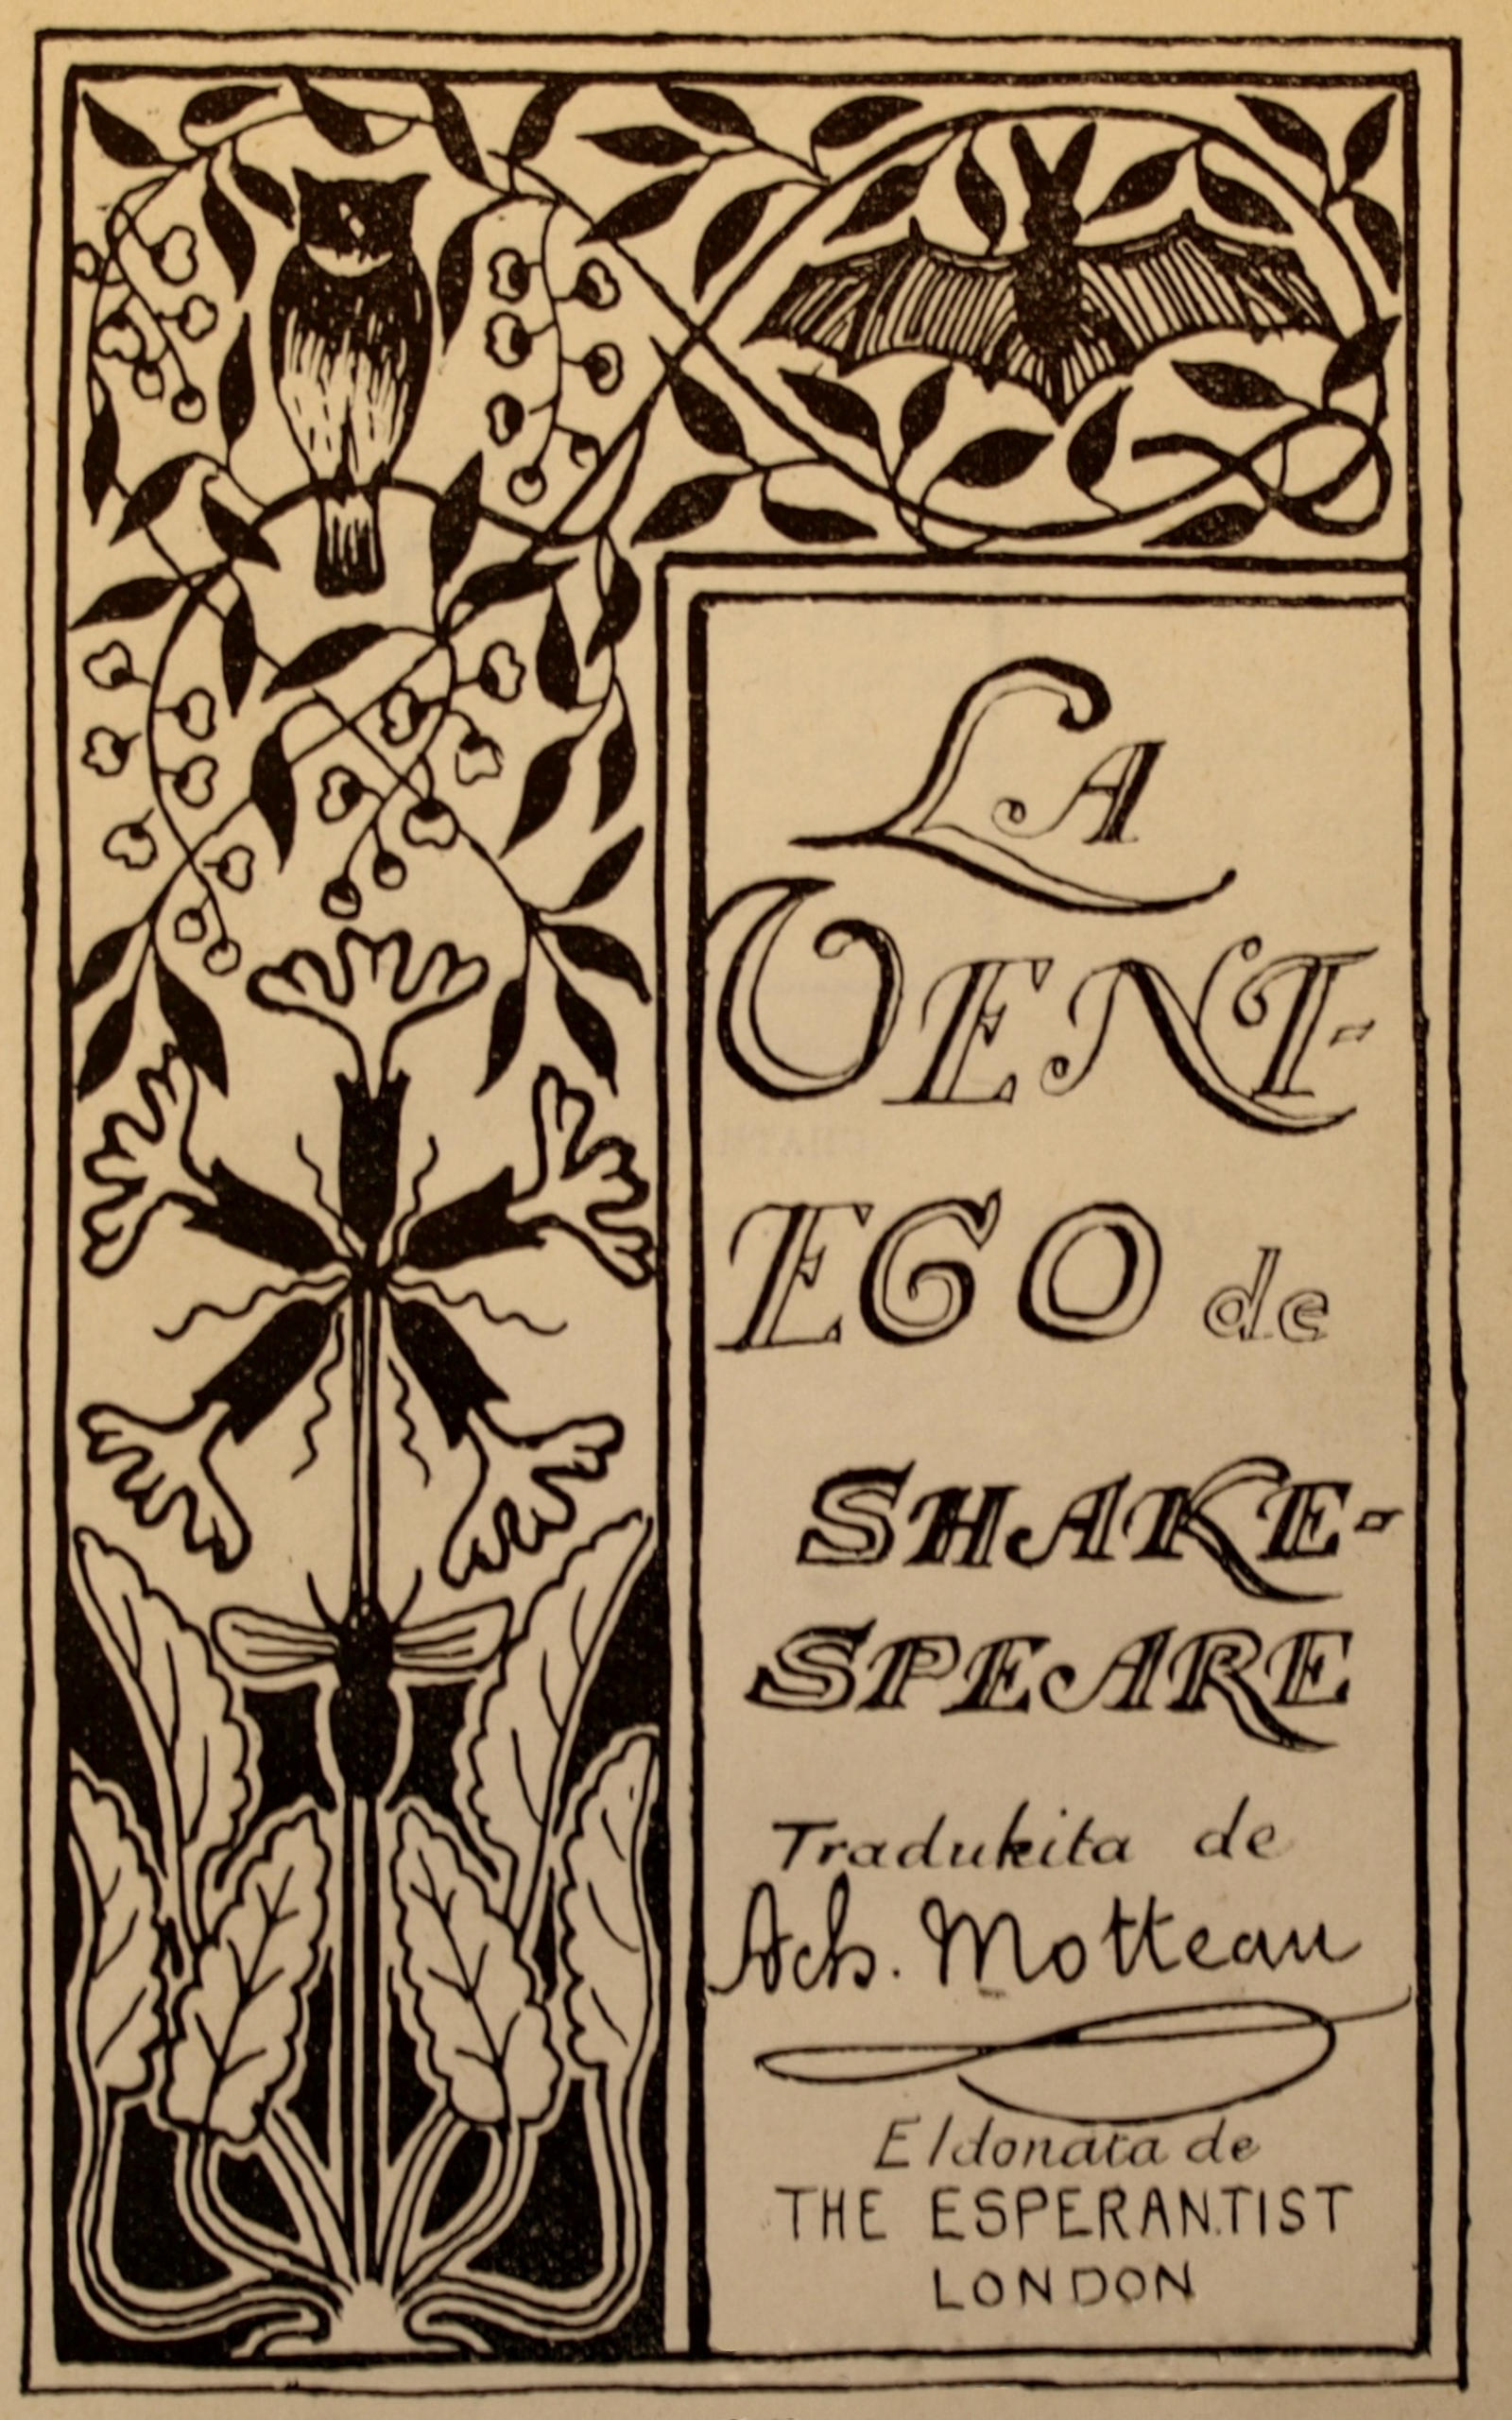 LA
VENT-
EGO de
SHAKE-
SPEARE
Tradukita de
Ach. Motteau
Eldonata de
THE ESPERANTIST
LONDON